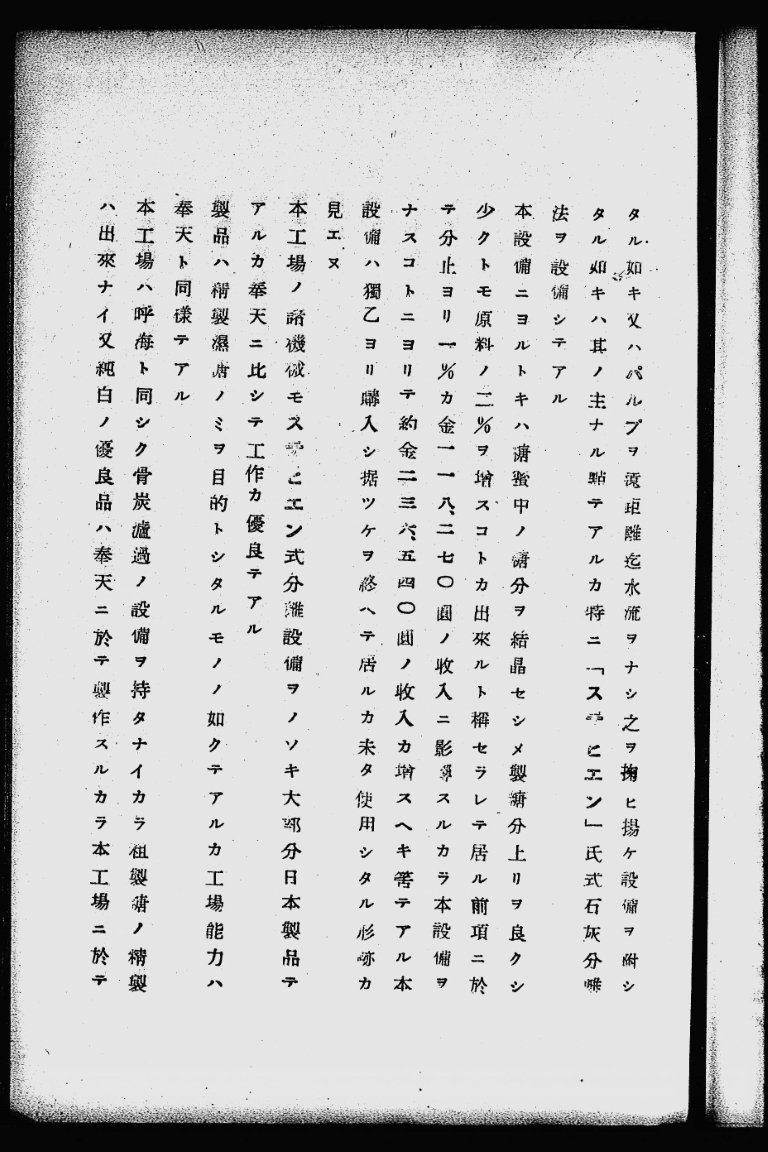 タル如キ又ハパルプヲ遠距離迄水流ヲナシ之ヲ掬ヒ揚ケ設備ヲ附シ
タル如キハ其ノ主ナル點テアルカ特ニ「ステヒエン」氏式石灰分離
法ヲ設備シテアル
本設備ニヨルトキハ糖蜜中ノ糖分ヲ結晶セシメ製糖分上リヲ良クシ
少クトモ原料ノ二%ヲ增スコトカ出來ルト稱セラレテ居ル前項ニ於
テ分止ヨリ一%カ金一一八、二七〇圓ノ收入ニ影響スルカラ本設備ヲ
ナスコトニヨリテ約金二三六、五四〇圓ノ收入カ增スヘキ筈テアル本
設備ハ獨乙ヨリ購入シ据ツケヲ終ヘテ居ルカ未タ使用シタル形跡カ
見エヌ
本工場ノ諸機械モステヒエン式分離設備ヲノソキ大部分日本製品テ
アルカ奉天ニ比シテ工作カ優良テアル
製品ハ精製濕糖ノミヲ目的トシタルモノノ如クテアルカ工場能力ハ
奉天ト同樣テアル
本工場ハ呼海ト同シク骨炭濾過ノ設備ヲ持タナイカラ粗製糖ノ精製
ハ出來ナイ又純白ノ優良品ハ奉天ニ於テ製作スルカラ本工場ニ於テ